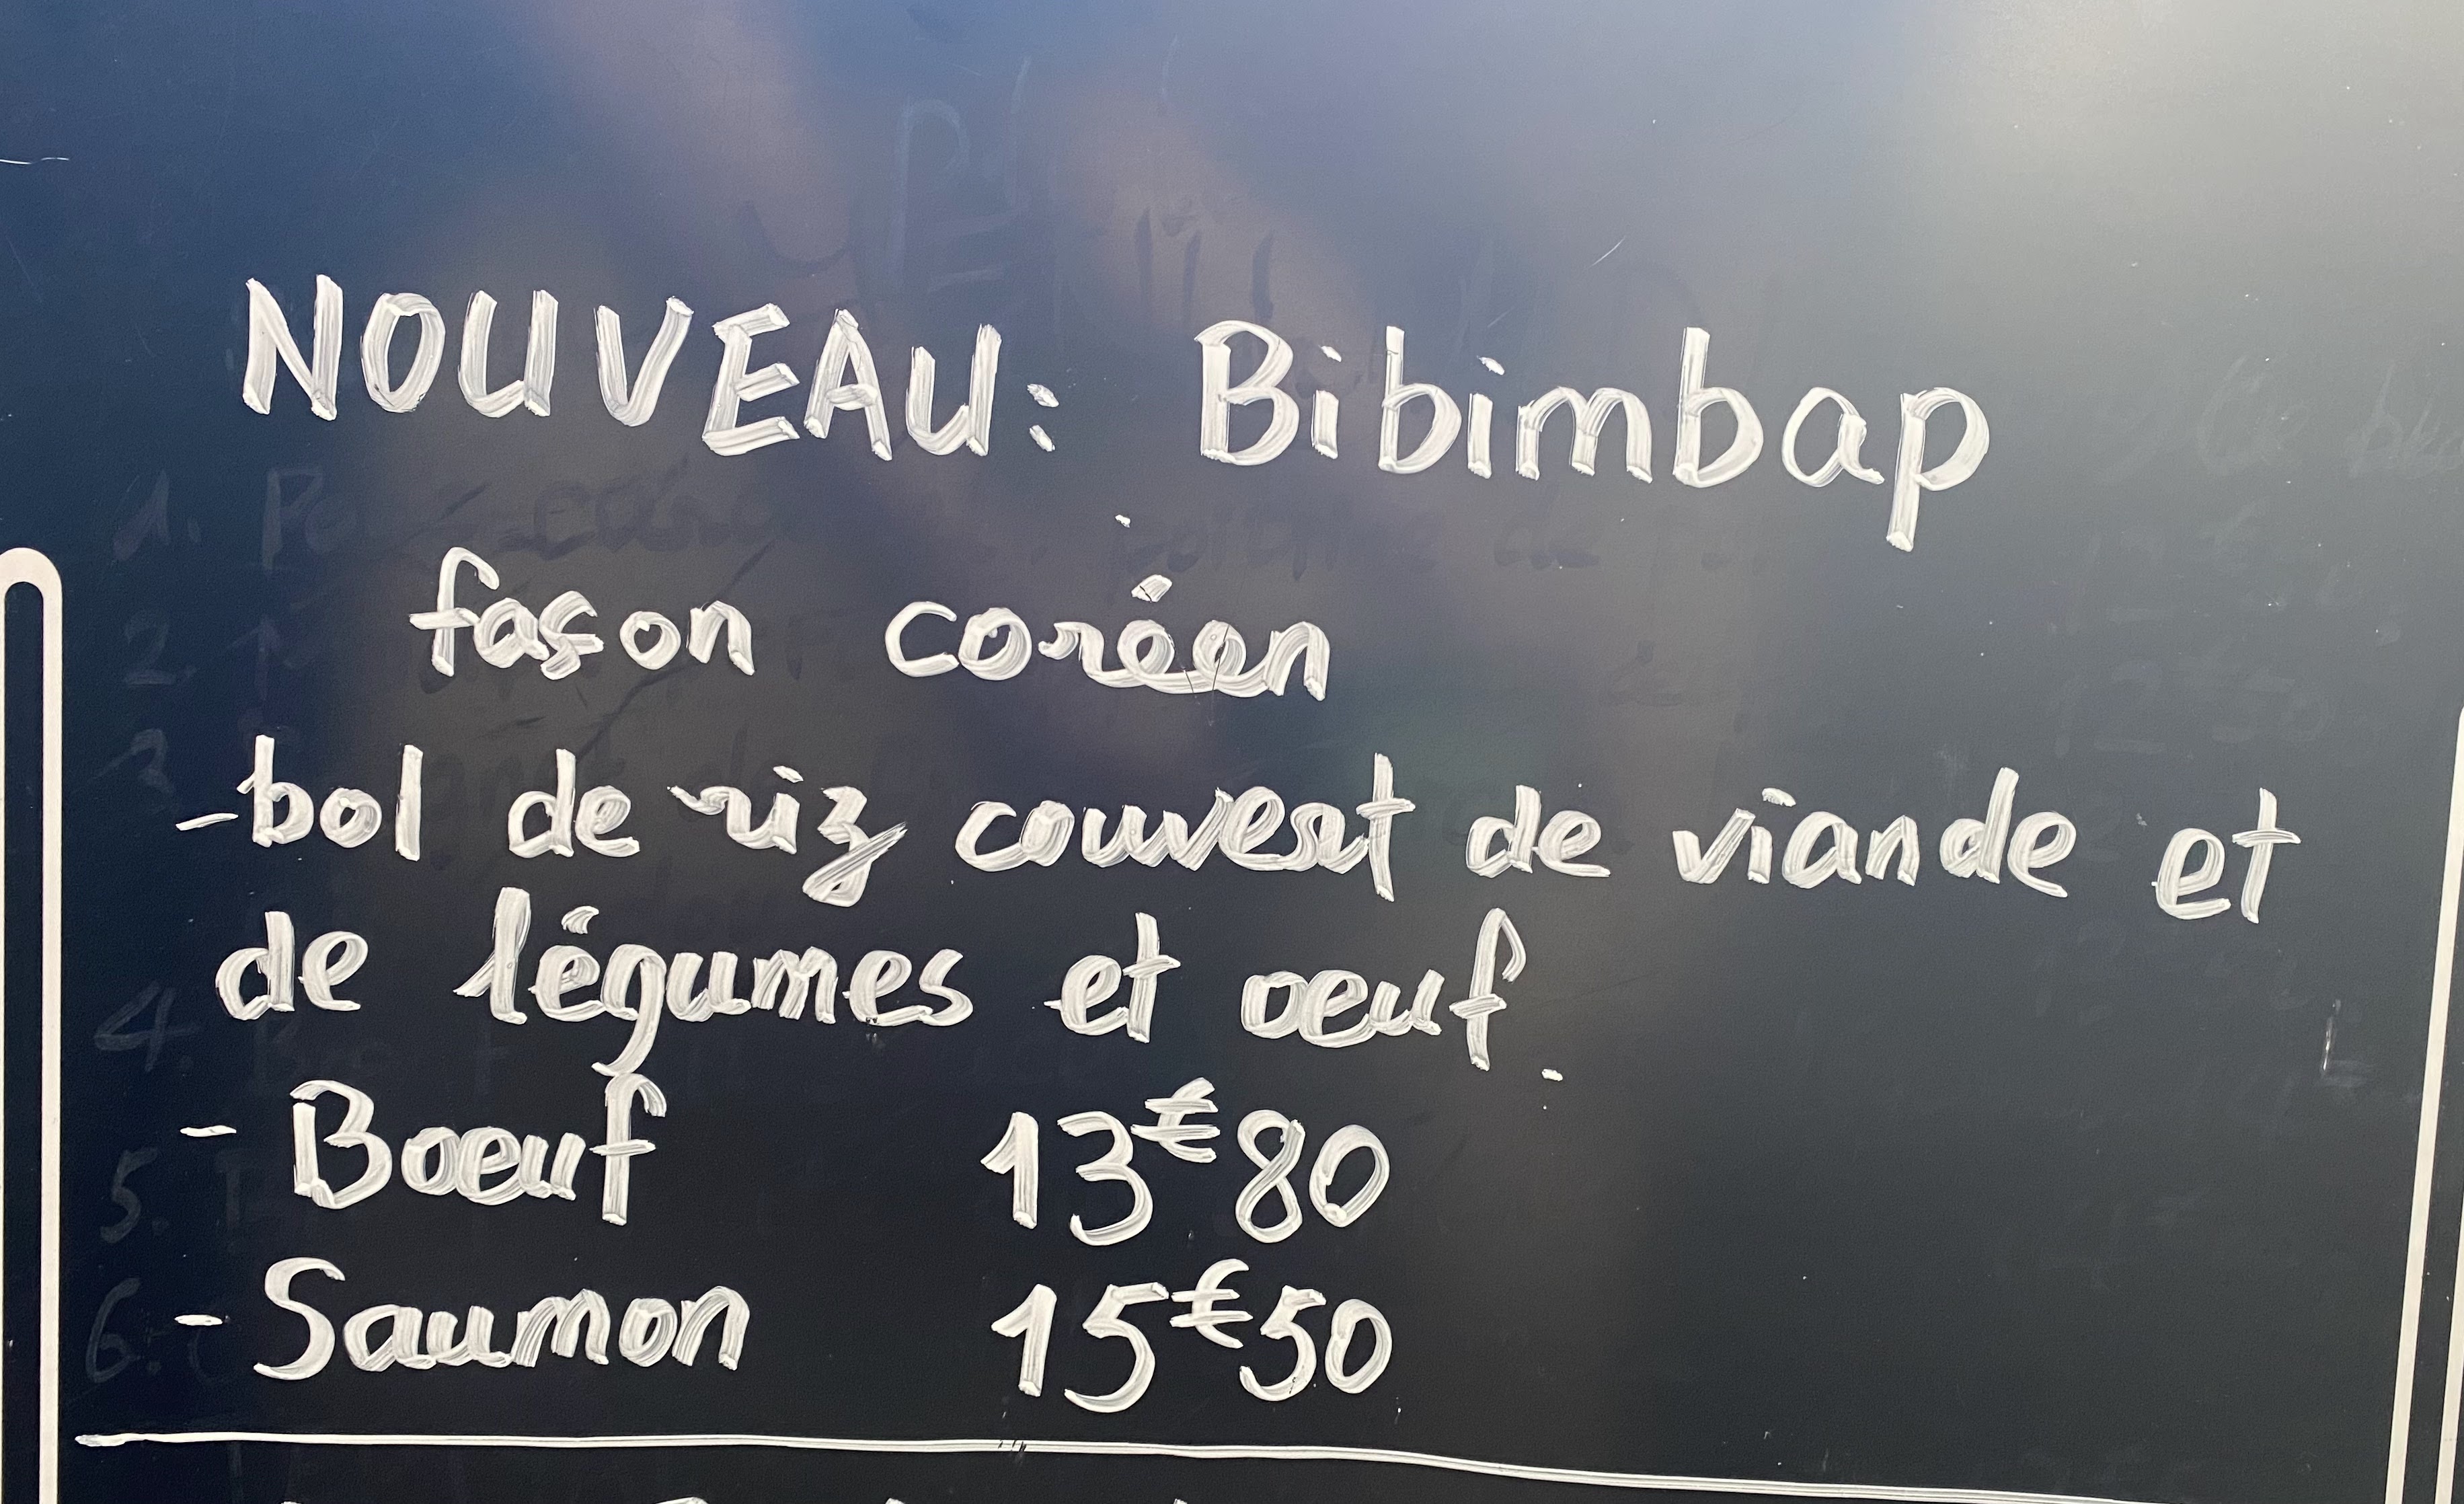 NOUVEAU: Bibimbap
façon coréen
- bol de riz couvert de viande et
de légumes et oeuf.
- Boeuf 13€80
- Saumon 15€50